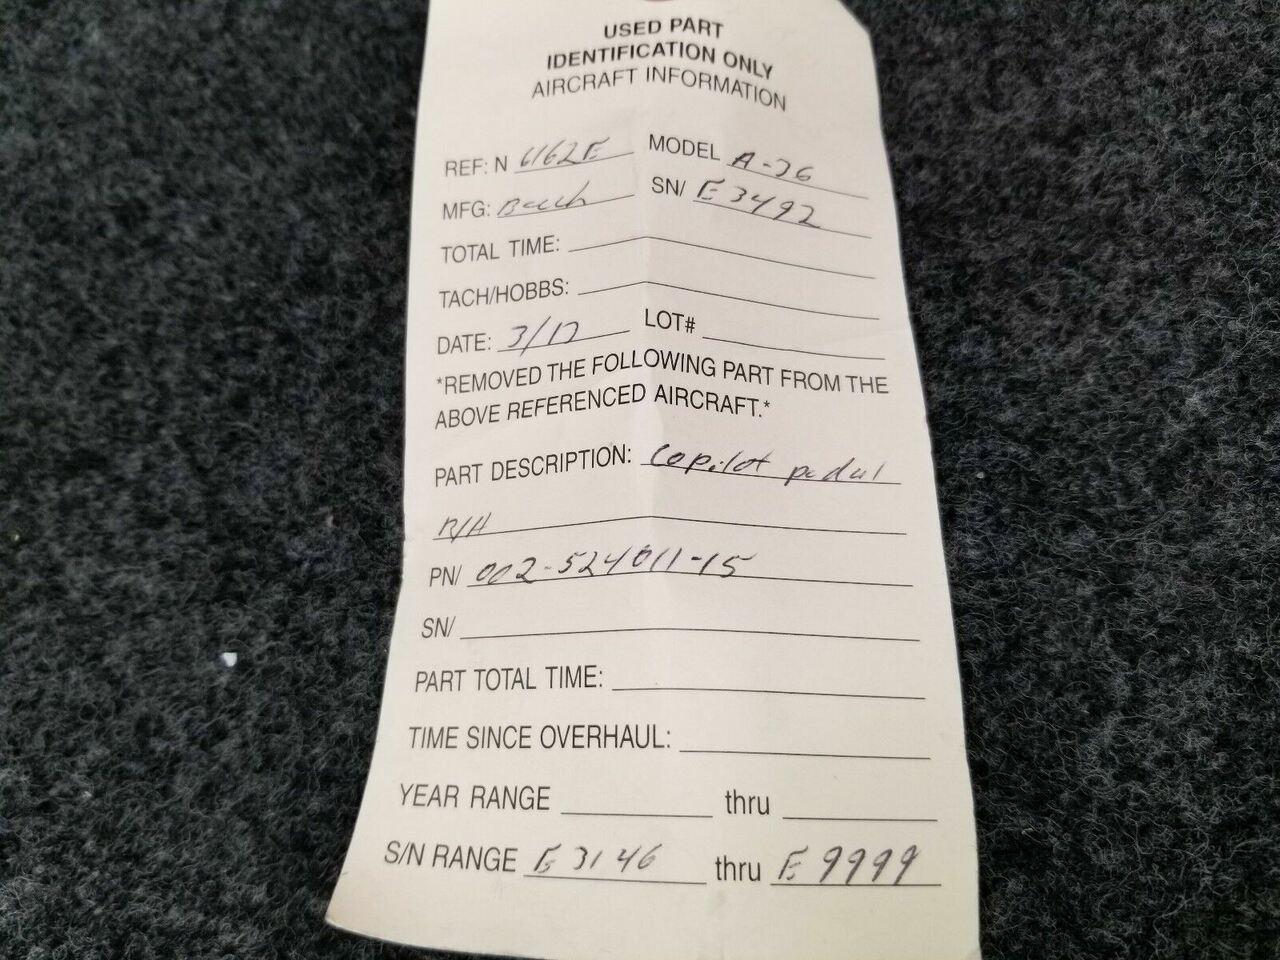 USED PART
IDENTIFICATION ONLY
AIRCRAFT INFORMATION
REF: N 6162E MODEL A-36
MFG: Beech SN/ E 3492
TOTAL TIME:
TACH/HOBBS:
DATE: 3/17 LOT#
*REMOVED THE FOLLOWING PART FROM THE
ABOVE REFERENCED AIRCRAFT.*
PART DESCRIPTION: Copilot pedal
R/H
PN/ 002-524011-15
SN/
PART TOTAL TIME:
TIME SINCE OVERHAUL:
YEAR RANGE thru
S/N RANGE E 3146 thru E 9999